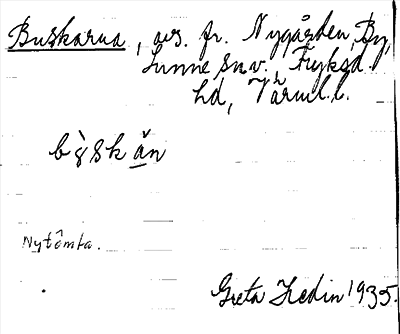 Buskarna, avs. fr. Nygården, By,
Sunne sn v., Fryksd.
hd, Värml. l.
Nytomta.
Greta Hedin 1935.